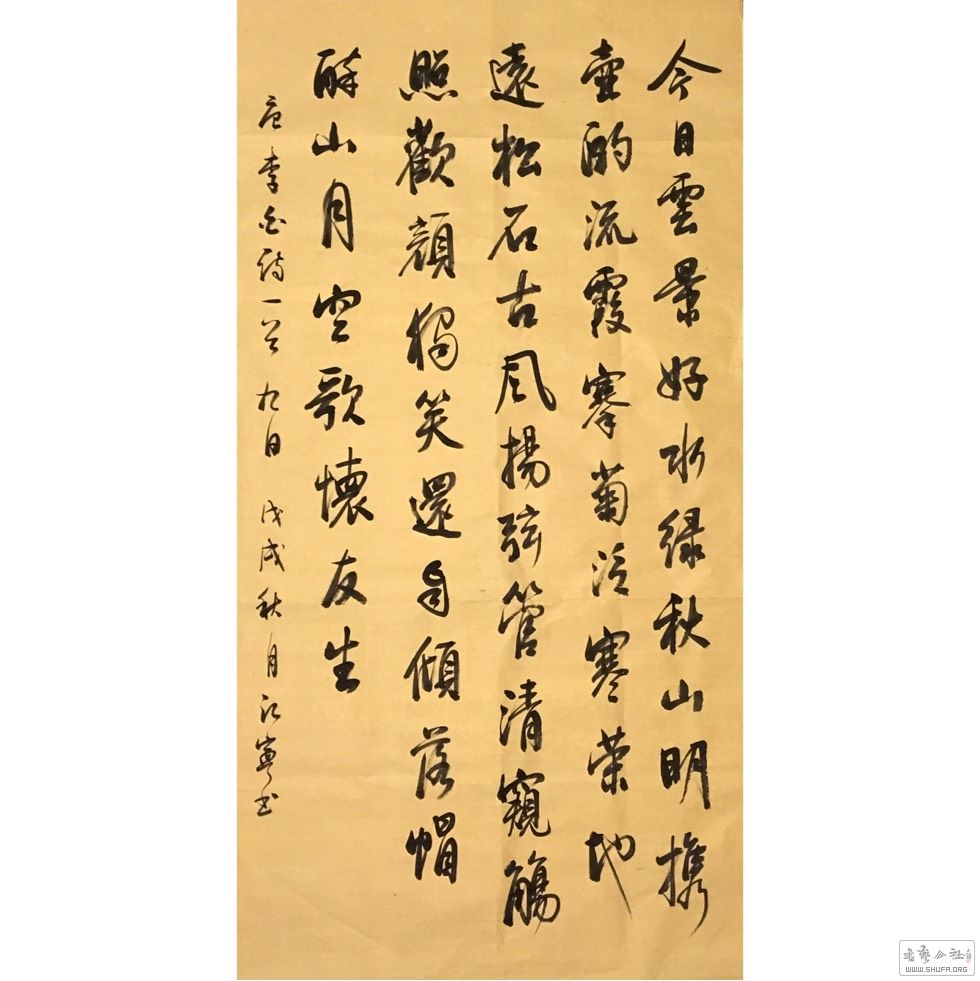 今日雲景好水緑秋山明携
壺酌流霞搴菊泛寒荣地
遠松石古風揚弦管清窺觴
照歡顔獨笑還自傾落帽
醉山月空歌懷友生
唐李白詩一首 九日 戊戌秋月江寧书
書藝公社
WWW.SHUFA.ORG